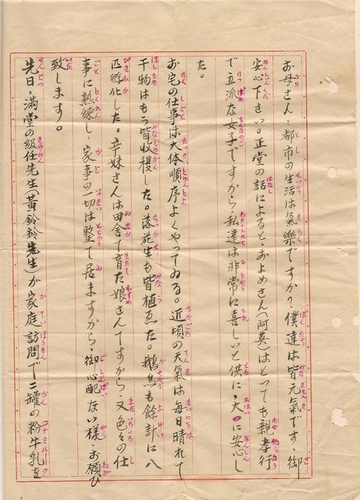 お母さん、都市の生活は氣樂ですか?僕達は皆元氣です 御
安心下さい。正堂の話によると、およめさん(阿英)はとっても親孝行
で立派な女子ですから私達は非常に喜しいと供に、大ニに安心し
た。
お宅の仕事は大体順序よくやってゐる。近頃の天氣は毎日晴れて
干物はもう皆收穫した。落花生も皆植ゑた。鵝鳥も餘計に八
匹孵化した。辛妹さんは田舍で育た娘さんですから、又色々の仕
事に熟練し、家事の一切は整て居ますから、御心配ない樣、お願ひ
致します。
先日、滿堂の級任先生(黃鈴鈴先生)が家庭訪問で二罐の粉牛乳を